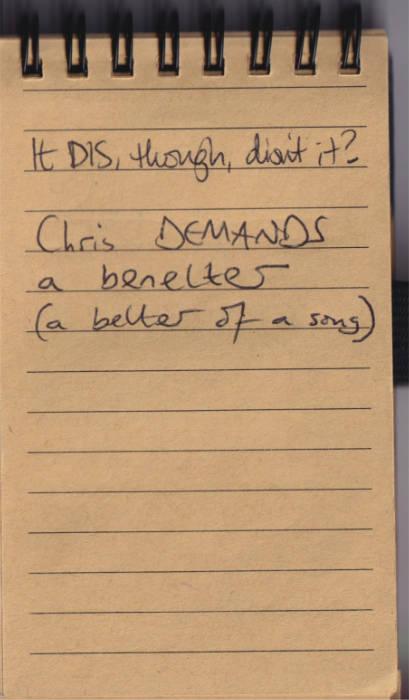 It DIS, though, disn't it?
Chris DEMANDS
a benelter
(a belter of a song)